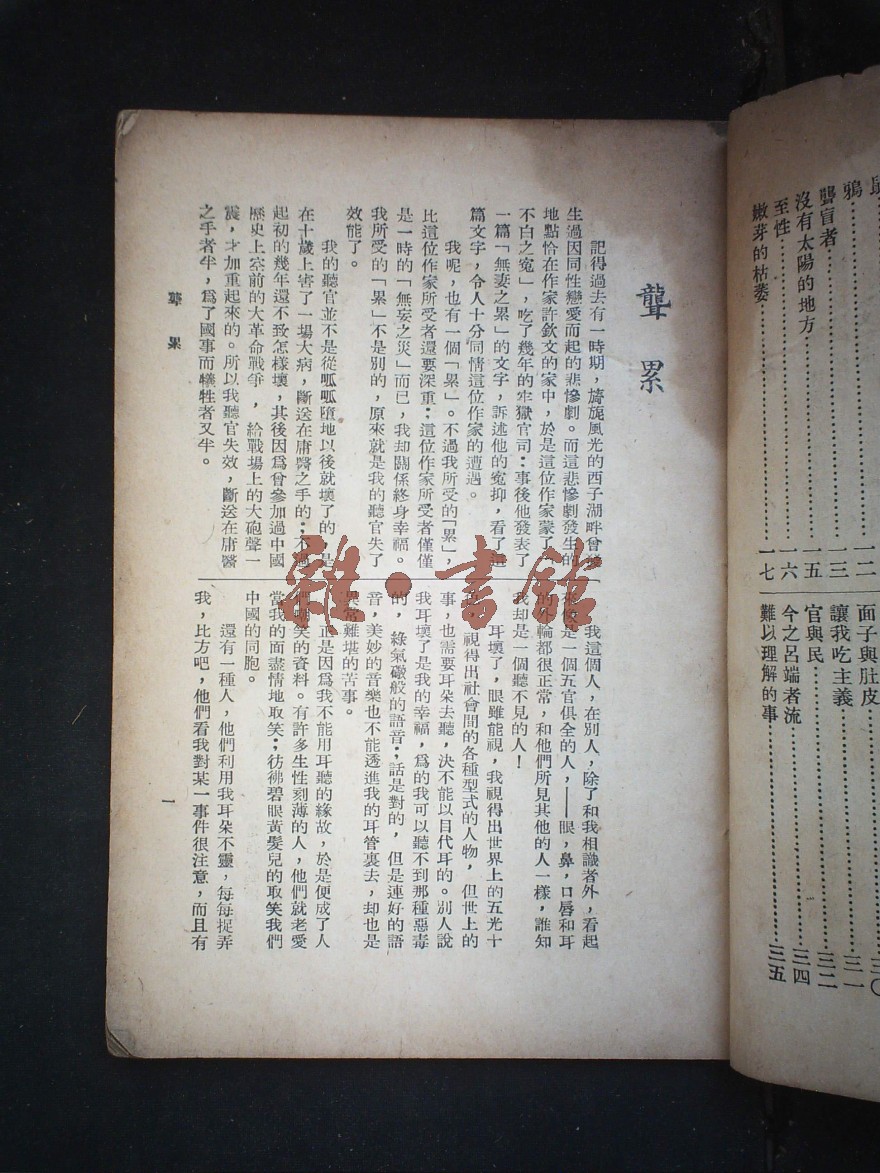 鴉⋯⋯⋯⋯一二
聾盲者⋯⋯⋯⋯一三
沒有太陽的地方⋯⋯⋯⋯一五
至性⋯⋯⋯⋯一六
嫩芽的枯萎⋯⋯⋯⋯一七
面子與肚皮⋯⋯⋯⋯三〇
讓我吃主義⋯⋯⋯⋯三一
官與民⋯⋯⋯⋯三二
今之呂端者流⋯⋯⋯⋯三四
難以理解的事⋯⋯⋯⋯三五
聾累
記得過去有一時期,旖旎風光的西子湖畔曾發
生過因同性戀愛而起的悲慘劇。而這悲慘劇發生的
地點恰在作家許欽文的家中,於是這位作家蒙了
不白之寃」,吃了幾年的牢獄官司:事後他發表了
一篇「無妻之累」的文字,訴述他的寃抑,看了這
篇文字,令人十分同情這位作家的遭遇。
我呢,也有一個「累」。不過我所受的「累」,
比這位作家所受者還要深重;這位作家所受者僅僅
是一時的「無妄之災」而已,我却關係終身幸福。
我所受的「累」不是別的,原來就是我的聽官失了
效能了。
我的聽官並不是從呱呱墮地以後就壞了的,是
在十歲上害了一場大病,斷送在庸醫之手的;不過
起初的幾年還不致怎樣壞,其後因爲曾參加過中國
歷史上空前的大革命戰爭,給戰場上的大砲聲一
震,才加重起來的。所以我聽官失效,斷送在庸醫
之手者半,爲了國事而犧牲者又半。
我這個人,在別人,除了和我相識者外,看起
來像是一個五官俱全的人,——眼,鼻,口唇和耳
的外輪都很正常,和他們所見其他的人一樣,誰知
我却是一個聽不見的人!
耳壞了,眼雖能視,我視得出世界上的五光十
視得出社會間的各種型式的人物,但世上的
事,也需要耳朵去聽,決不能以目代耳的。別人說
我耳壞了是我的幸福,爲的我可以聽不到那種惡毒
的,綠氣礮般的語音;話是對的,但是連好的語
音,美妙的音樂也不能透進我的耳管裏去,却也是
異常難堪的苦事。
正是因爲我不能用耳聽的緣故,於是便成了人
們嘲笑的資料。有許多生性刻薄的人,他們就老愛
當我的面盡情地取笑;彷彿碧眼黃髮兒的取笑我們
中國的同胞。
還有一種人,他們利用我耳朵不靈,每每捉弄
我,比方吧,他們看我對某一事件很注意,而且有
聾累
一
雜·書館